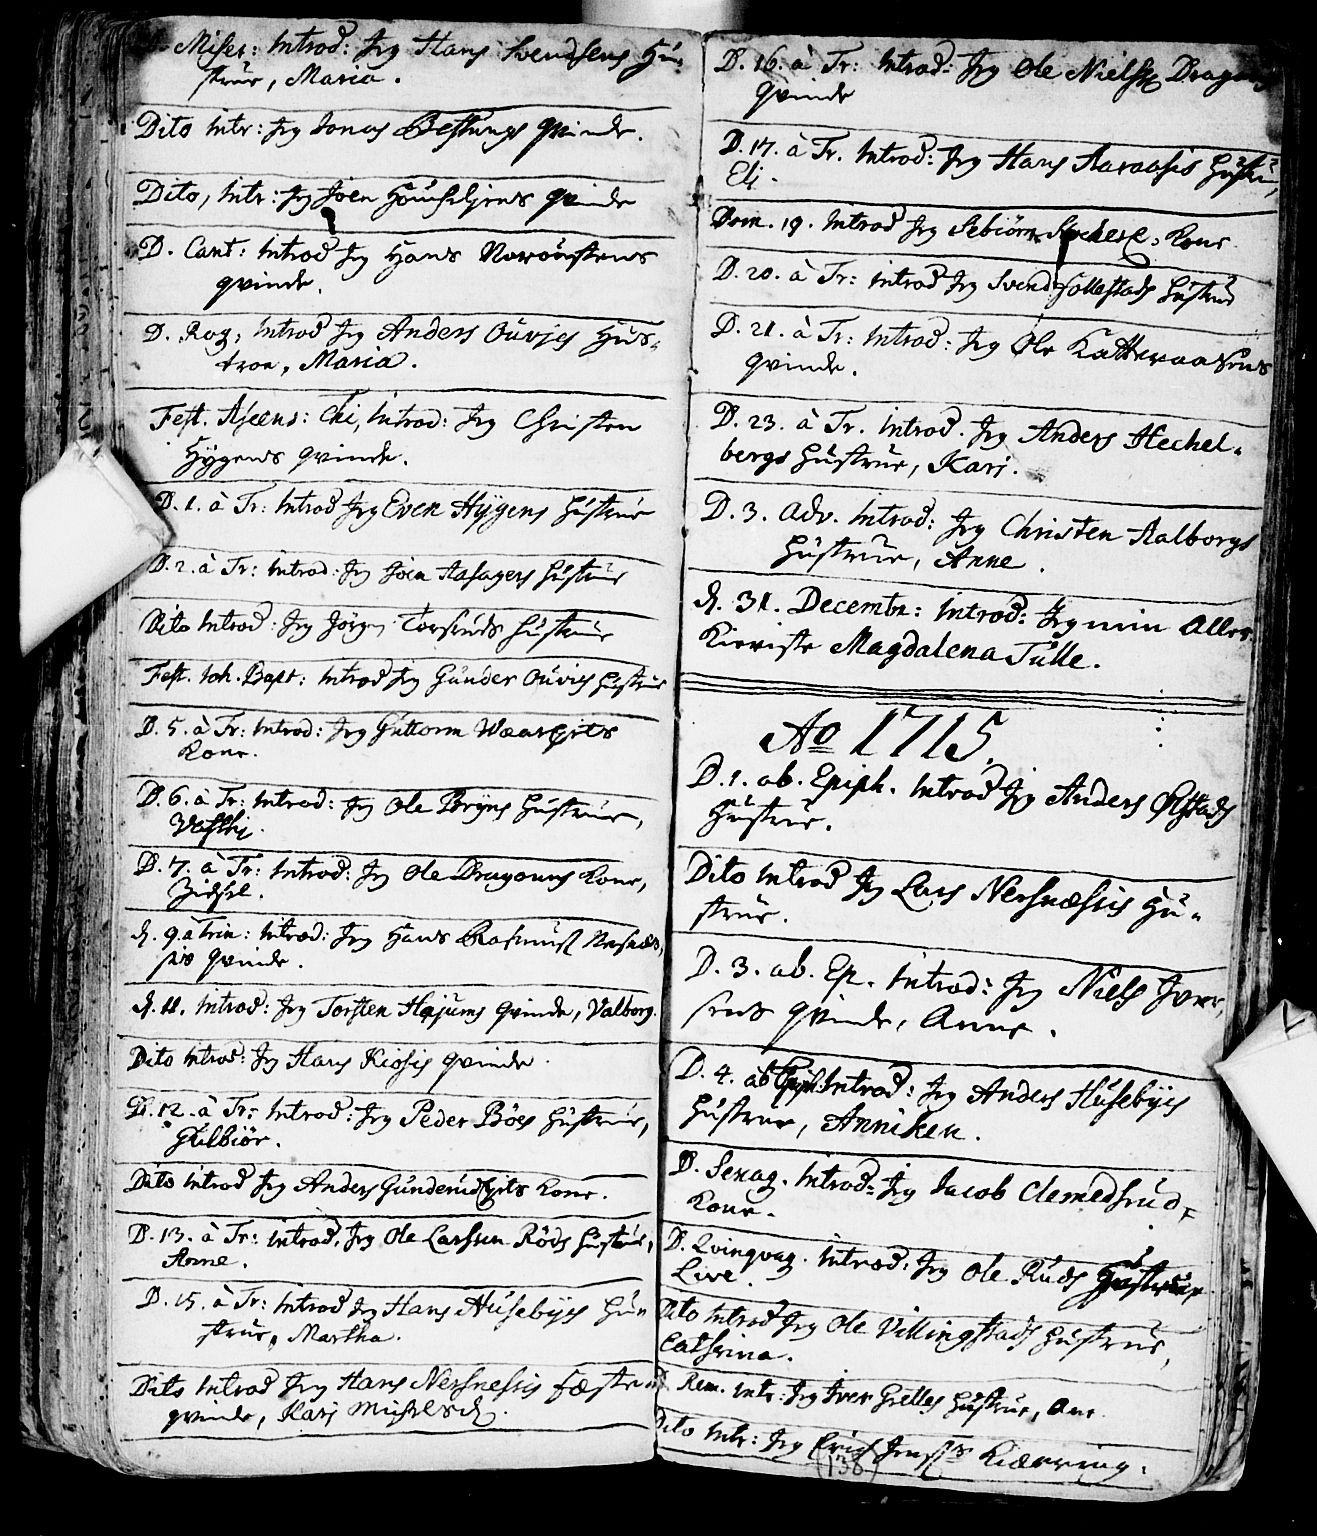 D. Miser: Introd: Jeg Hans Svendsens Hu-
strue, Maria.
Dito Intr: Jeg Jonas qvinde.
Dito, Intr: Jeg Joen qvinde
D. Cant: Introd Jeg Hans
qvinde.
D. Rog: Introd Jeg Anders Ouvjes Hus-
troe, Maria.
Fest. Ascens: Chri, Introd: Jeg Christen
Hÿgens qvinde.
D. 1. à Tr: Introd Jeg Even Hÿgens Hustrue
D. 2. à Tr: Introd: Jeg Joen Aasagers Hustrue
Dito Introd: Jeg Jörgen Torsruds Hustrue
Fest. Joh. Bapt: Introd Jeg Gunder Ouvies Hustrue
D. 5. à Tr: Introd: Jeg Guttorm
Kone.
D. 6. à Tr: Introd: Jeg Ole Bryns Hustrue,
D. 7. à Tr: Introd: Jeg Ole Dragouns Kone,
Zidsel.
d. 9 à Trin: Introd: Jeg Hans Rasmuss: Nersnæs-
sis qvinde.
d. 11. Introd: Jeg Torsten Højums qvinde, Valborg.
Dito Introd: Jeg Hans Kiosis qvinde.
D. 12. à Tr: Introd: Jeg Peder Böes Hustrue,
Gulbiör.
Dito Introd Jeg Anders Kone.
D. 13. à Tr: introd. Jeg Ole Larssen Röds Hustrue,
Anne.
D. 15. à Tr: Introd Jeg Hans Husebÿes Hu-
strue, Martha.
Dito Introd Jeg Hans Nersnessis fæste-
qvinde, Kari Michelsd.
D. 16. à Tr: Introd: Jeg Ole Nielss: Dragouns
qvinde
D. 17. à Tr. Introd: Jeg Hans Aaraasis Hustru,
Eli.
Dom. 19. Introd Jeg Sebiörn Kone
D. 20. à Tr: introd Jeg Svend Sollestads Hustrue
D. 21. à Tr: Introd: Jeg Ole Katteraasens
qvinde.
D. 23. à Tr. introd. Jeg Anders Hechel-
bergs Hustrue, Kari.
D. 3. Adv. Introd: Jeg Christen Aalborgs
Hustrue, Anne.
d. 31. Decembr: Introd: Jeg min Aller
Kieriste Magdalena Tulle.
Ao 1715.
D. 1. ab. Epiph. Introd Jeg Anders Ølstads
Hustrue.
Dito Introd Jeg Lars Nersnæssis Hu-
strue.
D. 3. ab. Ep. Introd: Jeg Niels Iver-
sens qvinde, Anne.
D. 4. ab Epiph. Introd: Jeg Anders Husebÿes
Hustrue, Anniken.
D. Sexag. Introd: Jeg Jacob Clemedsrud-
Kone.
D. Qvinqvag. Introd: Jeg Ole Ruds Hustrue
Live.
Dito Introd Jeg Ole Villingstads Hustrue,
Cathrina.
D. Rem. intr: Jeg Iver Grelles Hustrue, Ane
Dito Intr: Jeg Erich Jenss:s Kiærring.
(138)